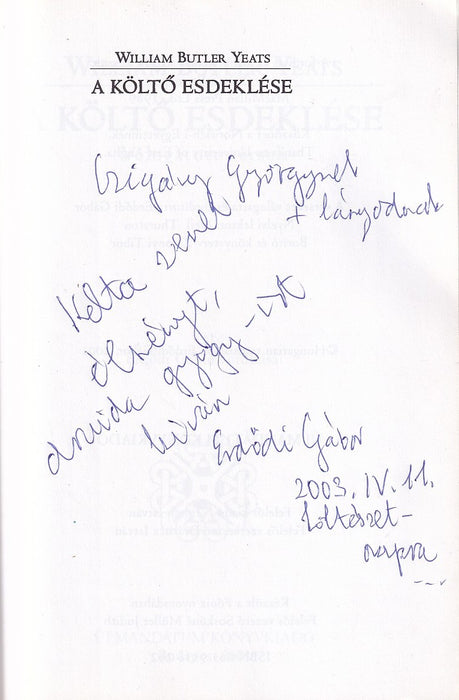 WILLIAM BUTLER YEATS
A KÖLTŐ ESDEKLÉSE
Czigány Györgynek
+ lányodnak
Kelta zenei
élményt,
druida gyógy-írt
kíván
Erdődi Gábor
2003. IV. 11.
Költészet-
napra